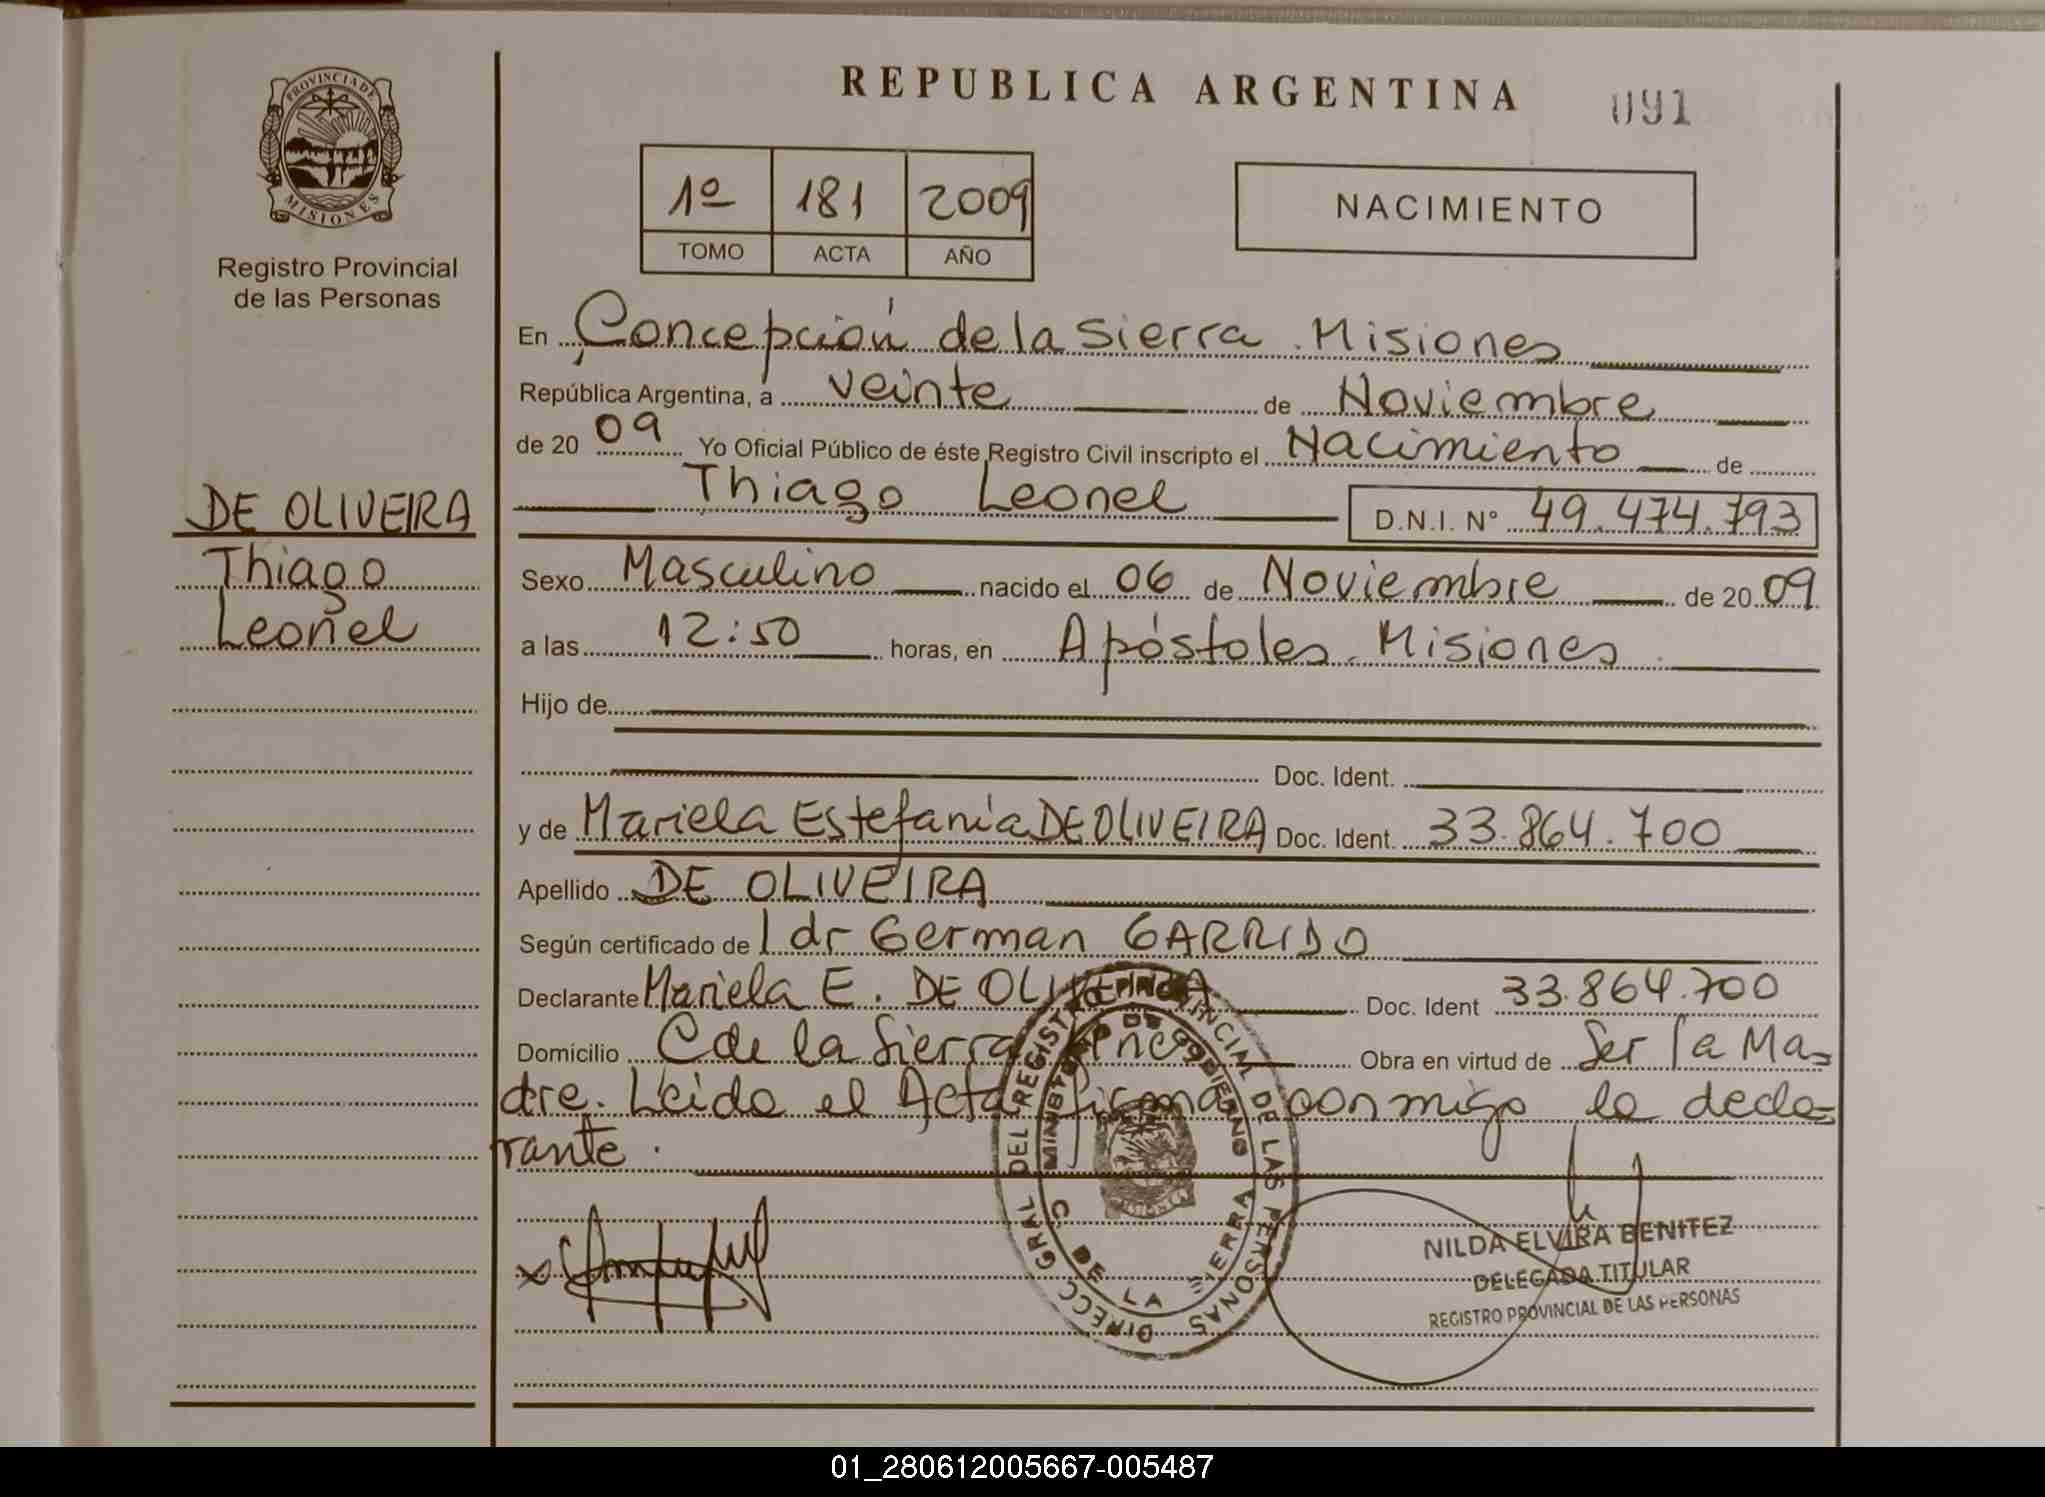 PROVINCIA DE
MISIONES
Registro Provincial
de las Personas
DE OLIVEIRA
Thiago
Leonel
REPUBLICA ARGENTINA
091
1º 181 2009
TOMO ACTA AÑO
NACIMIENTO
En Concepción de la Sierra. Misiones
República Argentina, a veinte de Noviembre
de 2009 Yo Oficial Público de éste Registro Civil inscripto el Nacimiento de
Thiago Leonel D.N.I. N° 49.474.793
Sexo Masculino nacido el 06 de Noviembre de 2009
a las 12:50 horas, en Apóstoles. Misiones
Hijo de
Doc. Ident.
y de Mariela Estefanía DE OLIVEIRA Doc. Ident. 33.864.700
Apellido DE OLIVEIRA
Según certificado del dr German GARRIDO
Declarante Mariela E. DE OLIVEIRA Doc. Ident 33.864.700
Domicilio C de la Sierra Mnes Obra en virtud de Ser la Ma=
dre. Leido el Acta firma conmigo la decla=
rante.
DIRECC GRAL DEL REGISTRO PROVINCIAL DE LAS PERSONAS
MINISTERIO DE GOBIERNO
C. DE LA SIERRA
NILDA ELVIRA BENITEZ
DELEGADA TITULAR
REGISTRO PROVINCIAL DE LAS PERSONAS
01_280612005667-005487